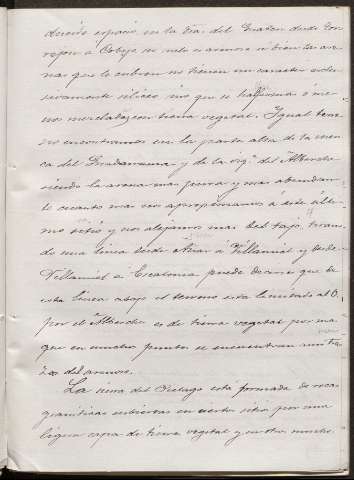 ducido espacio en la
rejon á Cobeja se vuelve arenoso si bien las are-
nas que le cubren no tienen un caracter esclu-
sivamente siliceo sino que se hallan mas o me-
nos mezcladas con tierra vegetal. Igual terre-
no encontramos en la parte alta de la cuen-
ca del Guadarrama y de la orga. del Alberche
siendo la arena mas pura y mas abundan-
te cuanto mas nos aproximamos á este ulti-
mo sitio y nos alejamos mas del tajo, tiran-
do una linea desde á Villamiel y desde
Villamiel á Escalona puede decirse que de
esta linea abajo el terreno está limitado al O.
por el Alberche es de tierra vegetal por mas
que en muchos puntos se encuentran
del arenoso.
La sierra del Pielago está formada de rocas
graniticas cubiertas en ciertos sitios por una
ligera capa de tierra vegetal y en otros muchos